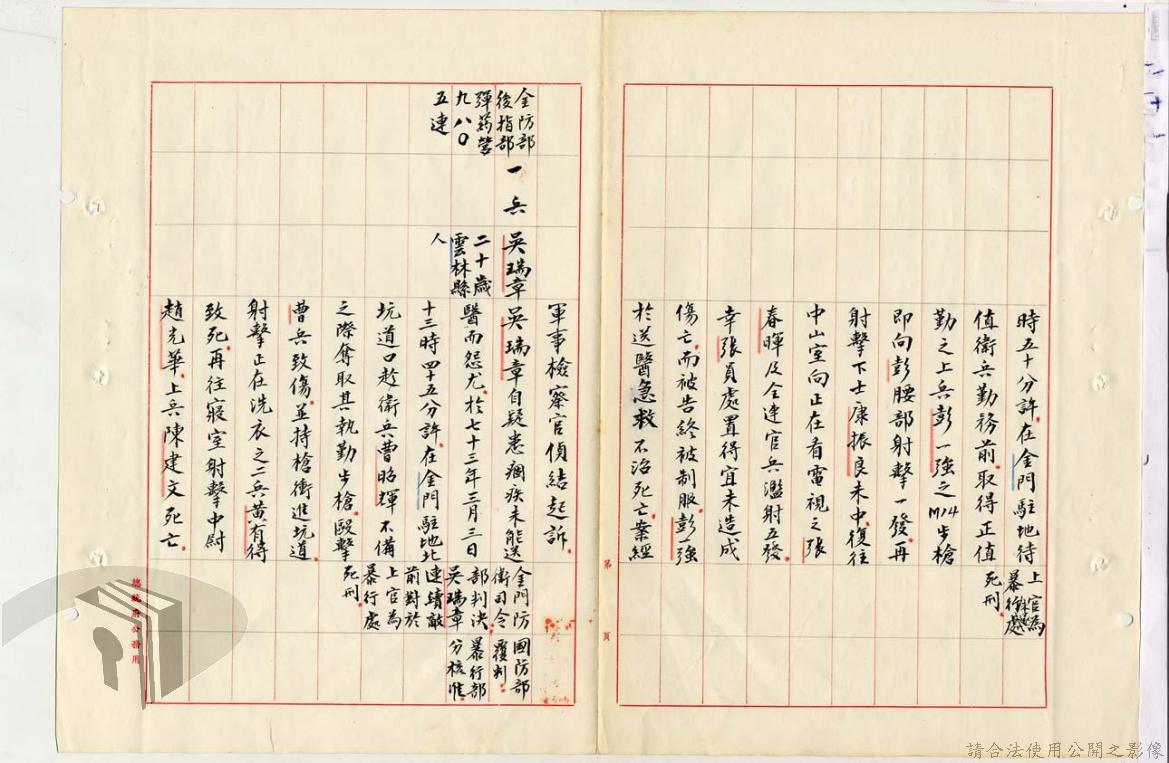 時五十分許.在金門駐地待
值衛兵勤務前.取得正值
勤之上兵彭一強之M14步槍
即向彭腰部射擊一發.再
射擊下士康振良未中.復往
中山室向正在看電視之張
春暉及全連官兵濫射五發.
幸張員處置得宜未造成
傷亡.而被告終被制服.彭強
於送醫急救不治死亡.案經
上官為
暴行處
死刑.
第 頁
軍事檢察官偵結起訴.
金防部
後指部
彈葯營
九八〇
五連
一兵
吳瑞章
二十歲
雲林縣
人
吳瑞章自疑患痼疾未能送
醫而怨尤.於七十三年三月三日
十三時四十五分許.在金門駐地北
坑道口趁衛兵曹昭輝不備
之際奪取其執勤步槍.毆擊
曹兵致傷.並持槍衝進坑道.
射擊正在洗衣之二兵黃有待
致死.再往寢室射擊中尉
趙光華.上兵陳建文死亡.
金門防
衛司令
部判決
吳瑞章
連續敵
前對於
上官為
暴行處
死刑.
國防部
覆判.
暴行部
分核准.
總統府公務用
請合法使用公開之影像